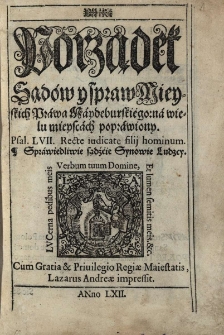 Porządek
Sądow y spraw Miey-
skich Prawa Maydeburskiego: ná wie-
lu mieyscách popráwiony.
Psal. LVII. Rectè iudicate filij hominum.
¶ Spráwiedliwie sądźcie Synowie Ludzcy.
Verbum tuum Domine,
LVCerna pedibus meis
Et lumen semitis meis, &c.
Cum Gratia & Priuilegio Regiæ Maiestatis,
Lazarus Andreæ impressit.
ANno LXII.